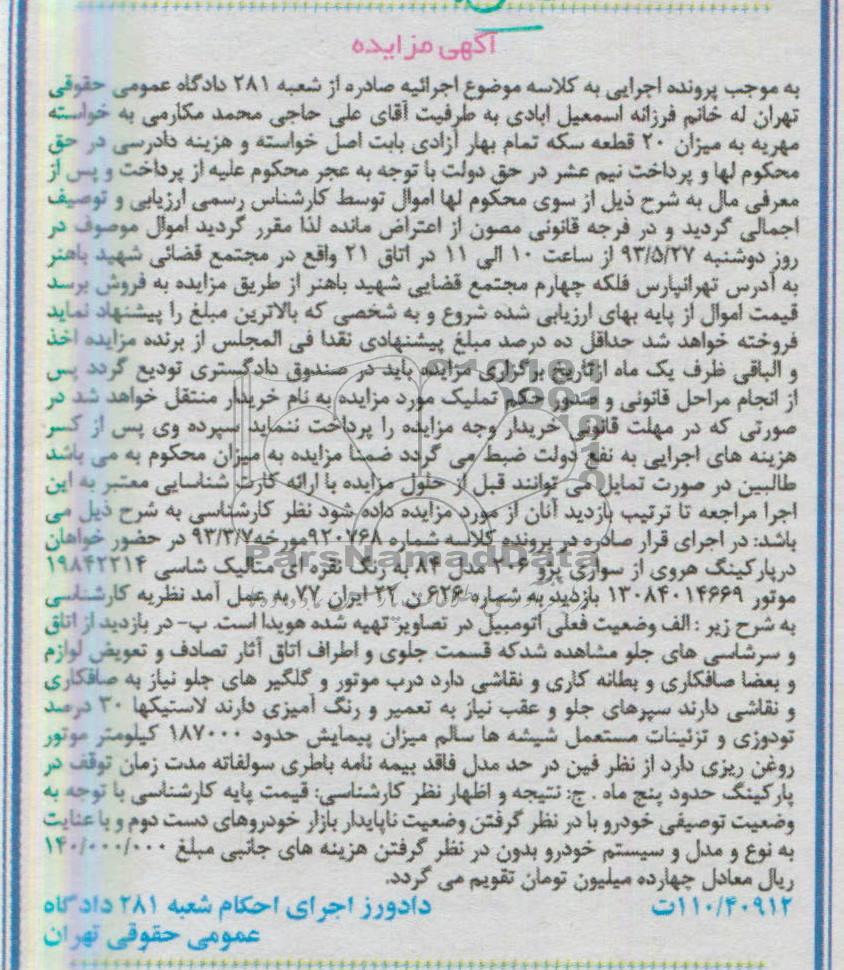 آگهی مزایده
به موجب پرونده اجرایی به کلاسه موضوع اجرائیه صادره از شعبه ۲۸۱ دادگاه عمومی حقوقی
تهران له خانم فرزانه اسمعیل ابادی به طرفیت آقای علی حاجی محمد مکارمی به خواسته
مهریه به میزان ۲۰ قطعه سکه تمام بهار آزادی بابت اصل خواسته و هزینه دادرسی در حق
محکوم لها و پرداخت نیم عشر در حق دولت با توجه به عجر محکوم علیه از پرداخت و پس از
معرفی مال به شرح ذیل از سوی محکوم لها اموال توسط کارشناس رسمی ارزیابی و توصیف
اجمالی گردید و در فرجه قانونی مصون از اعتراض مانده لذا مقرر گردید اموال موصوف در
روز دوشنبه ۹۳/۵/۲۷ از ساعت ۱۰ الی ۱۱ در اتاق ۲۱ واقع در مجتمع قضائی شهید باهنر
به آدرس تهرانپارس فلکه چهارم مجتمع قضایی شهید باهنر از طریق مزایده به فروش برسد
قیمت اموال از پایه بهای ارزیابی شده شروع و به شخصی که بالاترین مبلغ را پیشنهاد نماید
فروخته خواهد شد حداقل ده درصد مبلغ پیشنهادی نقدا فی المجلس از برنده مزایده اخذ
و الباقی ظرف یک ماه ازتاریخ برگزاری مزایده باید در صندوق دادگستری تودیع گردد پس
از انجام مراحل قانونی و صدور حکم تملیک مورد مزایده به نام خریدار منتقل خواهد شد در
صورتی که در مهلت قانونی خریدار وجه مزایده را پرداخت ننماید سپرده وی پس از کسر
هزینه های اجرایی به نفع دولت ضبط می گردد ضمنا مزایده به میزان محکوم به می باشد
طالبین در صورت تمایل می توانند قبل از حلول مزایده با ارائه کارت شناسایی معتبر به این
اجرا مراجعه تا ترتیب بازدید آنان از مورد مزایده داده شود نظر کارشناسی به شرح ذیل می
باشد: در اجرای قرار صادره در پرونده کلاسه شماره ۹۲۰۷۶۸مورخه۹۳/۳/۷ در حضور خواهان
درپارکینگ هروی از سواری پژو ۲۰۶ مدل ۸۴ به رنگ نقره ای متالیک شاسی ۱۹۸۴۲۲۱۴
موتور ۱۳۰۸۴۰۱۴۶۶۹ بازدید به شماره ۶۲۶ ن ۲۲ ایران ۷۷ به عمل آمد نظریه کارشناسی
به شرح زیر : الف وضعیت فعلی اتومبیل در تصاویر تهیه شده هویدا است. ب- در بازدید از اتاق
و سرشاسی های جلو مشاهده شدکه قسمت جلوی و اطراف اتاق آثار تصادف و تعویض لوازم
و بعضا صافکاری و بطانه کاری و نقاشی دارد درب موتور و گلگیر های جلو نیاز به صافکاری
و نقاشی دارند سپرهای جلو و عقب نیاز به تعمیر و رنگ آمیزی دارند لاستیکها ۳۰ درصد
تودوزی و تزئینات مستعمل شیشه ها سالم میزان پیمایش حدود ۱۸۷۰۰۰ کیلومتر موتور
روغن ریزی دارد از نظر فین در حد مدل فاقد بیمه نامه باطری سولفاته مدت زمان توقف در
پارکینگ حدود پنج ماه . ج: نتیجه و اظهار نظر کارشناسی: قیمت پایه کارشناسی با توجه به
وضعیت توصیفی خودرو با در نظر گرفتن وضعیت ناپایدار بازار خودروهای دست دوم و با عنایت
به نوع و مدل و سیستم خودرو بدون در نظر گرفتن هزینه های جانبی مبلغ ۱۴۰/۰۰۰/۰۰۰
ریال معادل چهارده میلیون تومان تقویم می گردد.
۱۱۰/۴۰۹۱۲ت دادورز اجرای احکام شعبه ۲۸۱ دادگاه
عمومی حقوقی تهران
ParsNamadData